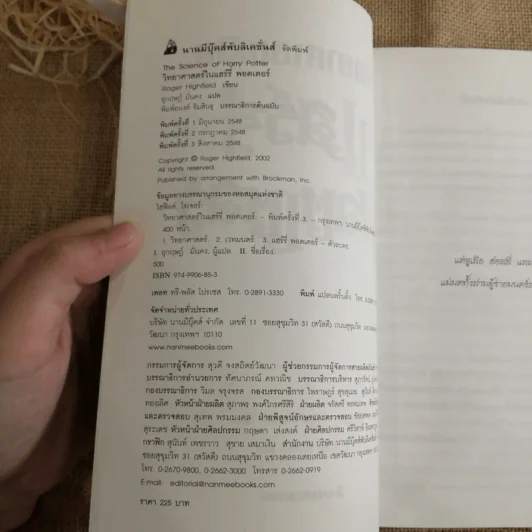 นานมีบุ๊คส์พับลิเคชั่นส์ จัดพิมพ์
The Science of Harry Potter
วิทยาศาสตร์ในแฮร์รี่ พอตเตอร์
Roger Highfield เขียน
แปล
บรรณาธิการต้นฉบับ
พิมพ์ครั้งที่ 1 มิถุนายน 2548
พิมพ์ครั้งที่ 2 กรกฎาคม 2548
พิมพ์ครั้งที่ 3 สิงหาคม 2548
Copyright © Roger Highfield, 2002
All rights reserved.
Published by arrangement with Brockman, Inc.
ข้อมูลทางบรรณานุกรมของหอสมุดแห่งชาติ
ไฮฟีลด์, โรเจอร์.
วิทยาศาสตร์ในแฮร์รี่ พอตเตอร์. - พิมพ์ครั้งที่ 3. - กรุงเทพฯ: นานมีบุ๊คส์
400 หน้า.
1. วิทยาศาสตร์. 2. เวทมนตร์. 3. แฮร์รี่ พอตเตอร์ - ตัวละคร
ผู้แปล. II. ชื่อเรื่อง.
500
ISBN 974-9906-85-3
เพลท ทรี-พลัส โปรเซส โทร. 0-2891-3330 พิมพ์
จัดจำหน่ายทั่วประเทศ
บริษัท นานมีบุ๊คส์ จำกัด เลขที่ 11 ซอยสุขุมวิท 31 (สวัสดี) ถนนสุขุมวิท
วัฒนา กรุงเทพฯ 10110
www.nanmeebooks.com
กรรมการผู้จัดการ สุวดี จงสถิตย์วัฒนา ผู้ช่วยกรรมการผู้จัดการสายผลิต
บรรณาธิการอำนวยการ ทัศนาภรณ์ คทวณิช บรรณาธิการบริหาร
กองบรรณาธิการ วิมล จรุงจรส กองบรรณาธิการ ไพราษฎร์ สุขสุเมฆ
หัวหน้าฝ่ายผลิต สุภาพร พงศ์ไกรศรีสิริ ฝ่ายผลิต
และตรวจสอบ สุเทพ พรมมงคล ฝ่ายพิสูจน์อักษรและตรวจสอบ
สุระเดช หัวหน้าฝ่ายศิลปกรรม กฤษดา เส่งสงค์ ฝ่ายศิลปกรรม
กราฟิก สุนันท์ เพชรวาว สุชาย เสมาเงิน สำนักงาน บริษัท นานมีบุ๊คส์
ซอยสุขุมวิท 31 (สวัสดี) ถนนสุขุมวิท แขวงคลองเตยเหนือ เขตวัฒนา
โทร. 0-2670-9800, 0-2662-3000 โทรสาร 0-2662-0919
E-mail: editorial@nanmeebooks.com
ราคา 225 บาท